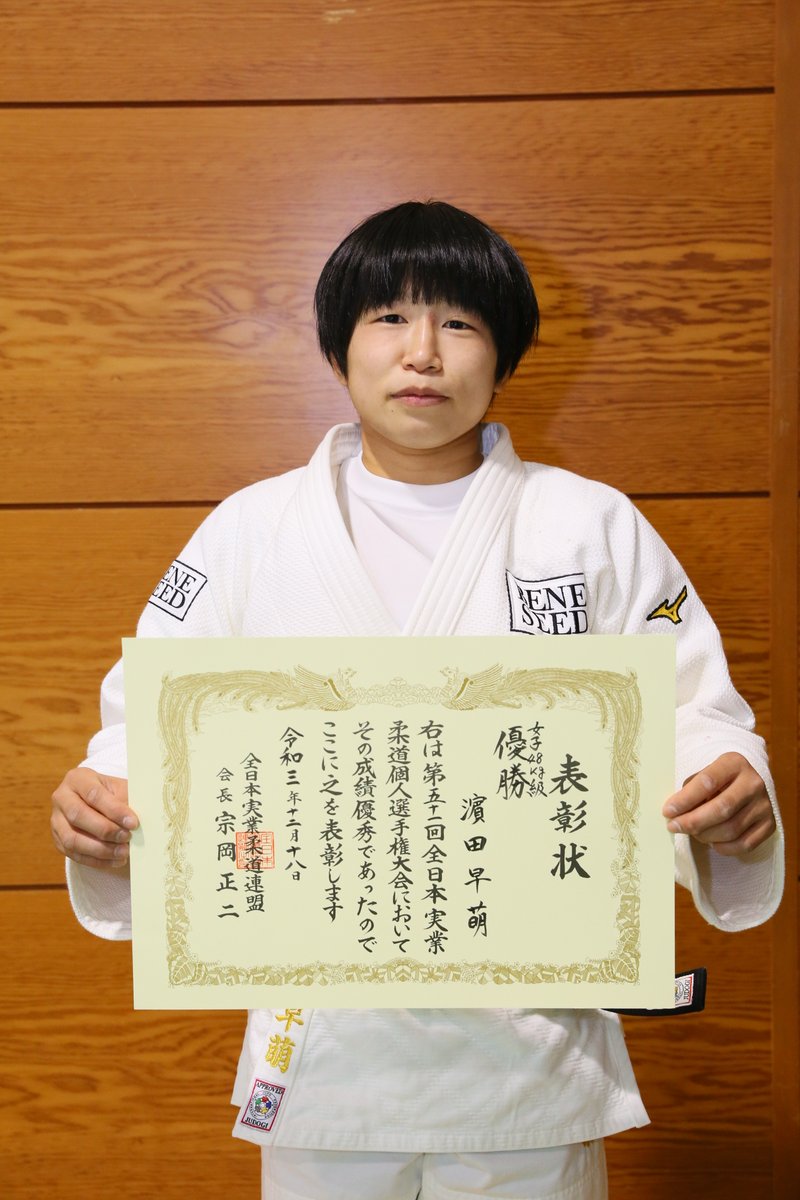 表彰状
女子48kg級
優勝
濵田早萌
右は第五十一回全日本実業
柔道個人選手権大会において
その成績優秀であったので
ここに之を表彰します
令和三年十二月十八日
全日本実業柔道連盟
会長 宗岡正二
BENE
SEED
ENE
EED
早萌
APPROVED
JUDOGI